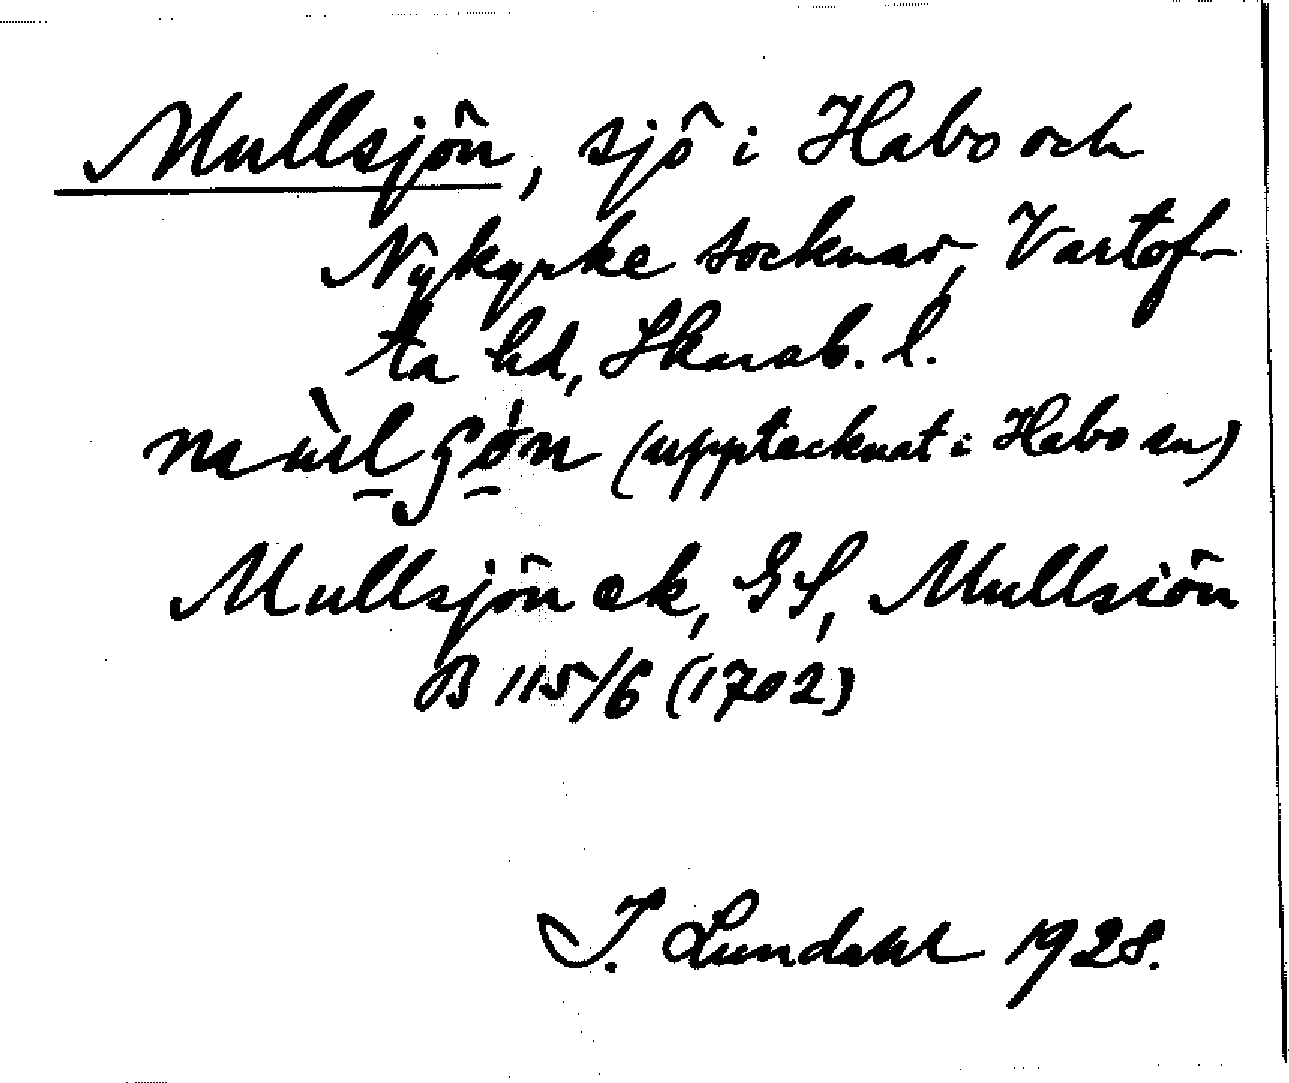 Mullsjön, sjö i Habo och
Nykyrke socknar, Vartof-
ta hd, Skarab. l.
(upptecknat i Habo sn)
Mullsjön ek, GS, Mullsiön
B 115/6 (1702)
I. Lundahl 1928.